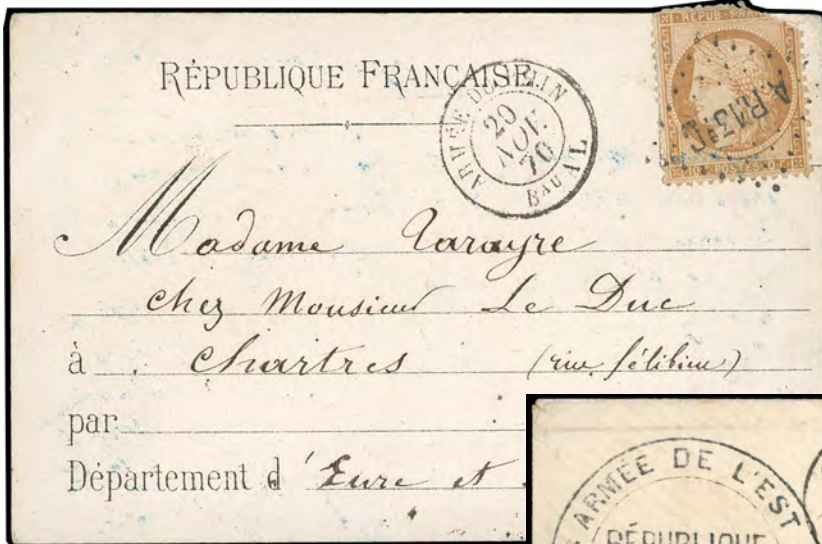 RÉPUBLIQUE FRANÇAISE
ARMÉE DU RHIN
20
NOV.
70
BAU AL
RÉPUB · FRANC
A.R.13ᵉC
10 C POSTES 10 C
Madame Tarayre
chez Monsieur Le Duc
à Chartres (rue félibien)
par
Département d'Eure et
ARMÉE DE L'EST
RÉPUBLIQUE